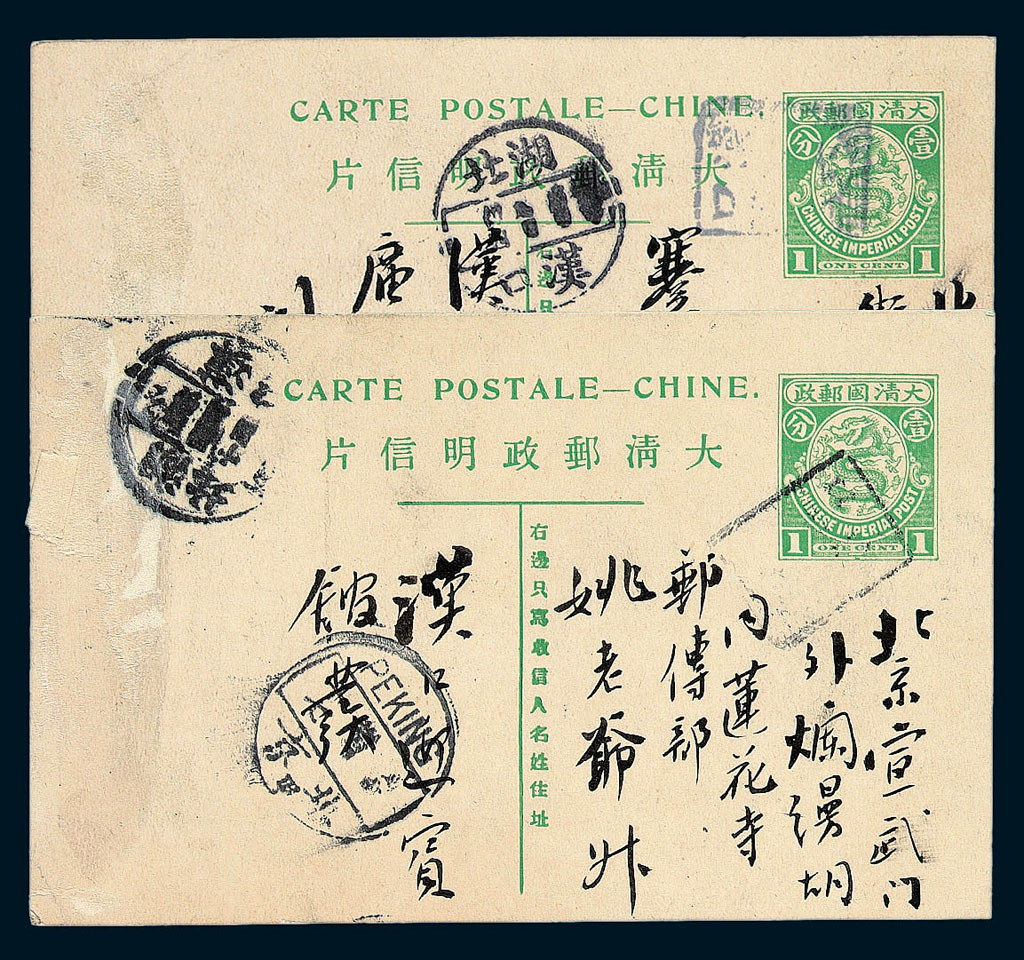 CARTE POSTALE—CHINE.
大清郵政明信片
大清國郵政
壹分
CHINESE IMPERIAL POST
1 ONE CENT 1
湖北
漢口
右邊只
蹇
漢
CARTE POSTALE—CHINE.
大清郵政明信片
大清國郵政
壹分
CHINESE IMPERIAL POST
1 ONE CENT 1
右邊只寫收信人名姓住址
北京宣武门
外爛漫胡
同蓮花寺
郵傳部
姚老爺
漢口
賓
館
PEKIN
北京